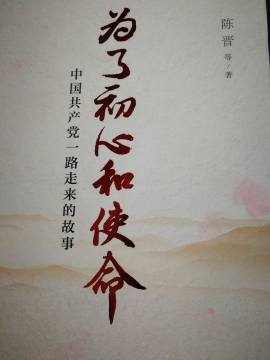 为了初心和使命
中国共产党一路走来的故事
陈晋 等/著